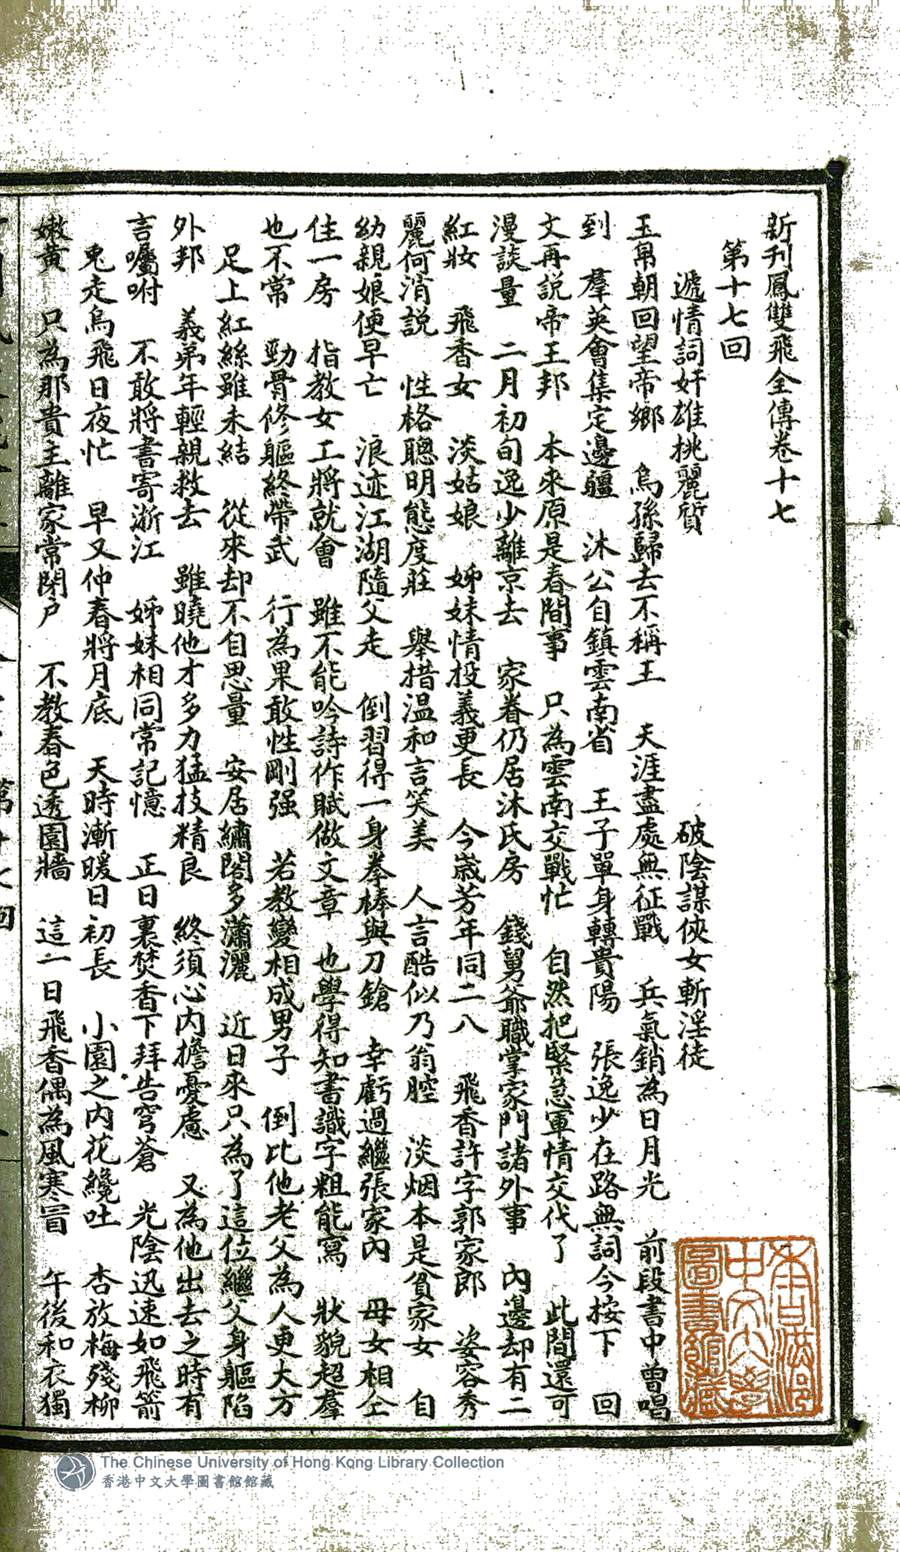 新刊鳳雙飛全傳卷十七
第十七回
遞情詞奸雄挑麗質　破陰謀俠女斬淫徒
玉帛朝回望帝鄉　烏孫歸去不稱王　天涯盡處無征戰　兵氣銷為日月光　前段書中曾唱
到　羣英會集定邊疆　沐公自鎮雲南省　王子單身轉貴陽　張逸少在路無詞今按下　回
文再說帝王邦　本來原是春間事　只為雲南交戰忙　自然把緊急軍情交代了　此間還可
漫談量　二月初旬逸少離京去　家眷仍居沐氏房　錢舅爺職掌家門諸外事　內邊却有二
紅妝　飛香女　淡姑娘　姊妹情投義更長　今歲芳年同二八　飛香許字郭家郎　姿容秀
麗何消說　性格聰明態度莊　舉措温和言笑美　人言酷似乃翁腔　淡烟本是貧家女　自
幼親娘便早亡　浪迹江湖隨父走　倒習得一身拳棒與刀鎗　幸虧過繼張家內　母女相仝
住一房　指教女工將就會　雖不能吟詩作賦做文章　也學得知書識字粗能寫　狀貌超羣
也不常　勁骨修軀終帶武　行為果敢性剛强　若教變相成男子　倒比他老父為人更大方
足上紅絲雖未結　從來却不自思量　安居繡閣多瀟灑　近日來只為了這位繼父身軀陷
外邦　義弟年輕親救去　雖曉他才多力猛技精良　終須心內擔憂慮　又為他出去之時有
言囑咐　不敢將書寄浙江　姊妹相同常記憶　正日裏焚香下拜告穹蒼　光陰迅速如飛箭
兎走烏飛日夜忙　早又仲春將月底　天時漸暖日初長　小園之內花纔吐　杏放梅殘柳
嫩黃　只為那貴主離家常閉户　不教春色透園牆　這一日飛香偶為風寒冒　午後和衣獨
香港中文大學圖書館藏
The Chinese University of Hong Kong Library Collection
香港中文大學圖書館館藏